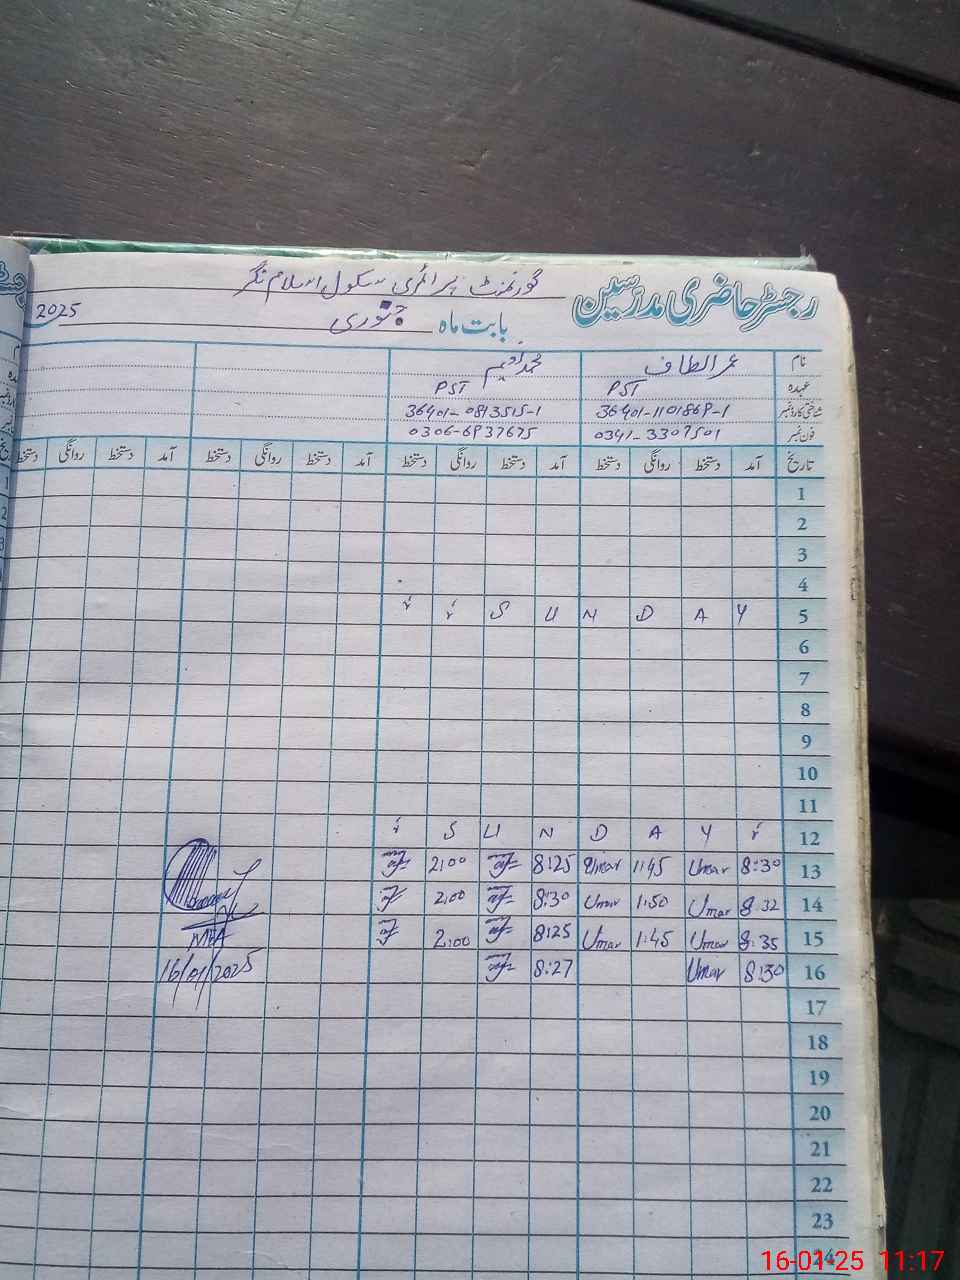 رجسٹر حاضری مدرسین گورنمنٹ پرائمری سکول اسلام نگر
بابت ماہ جنوری 2025
نام عمر الطاف محمد ندیم
عہدہ PST PST
شناختی کارڈ نمبر 36401-1101869-1 36401-0813515-1
فون نمبر 0341-3307501 0306-6937675
تاریخ آمد دستخط روانگی دستخط آمد دستخط روانگی دستخط آمد دستخط روانگی دستخط آمد دستخط روانگی دستخط
1
2
3
4
5 S U N D A Y
6
7
8
9
10
11
12 S U N D A Y
13 8:30 Umar 1:45 Umar 8:25 2:00
14 8:32 Umar 1:50 Umar 8:30 2:00
15 8:35 Umar 1:45 Umar 8:25 2:00
MEA
16 8:30 Umar 8:27
16/01/2025
17
18
19
20
21
22
23
24
16-01-25 11:17